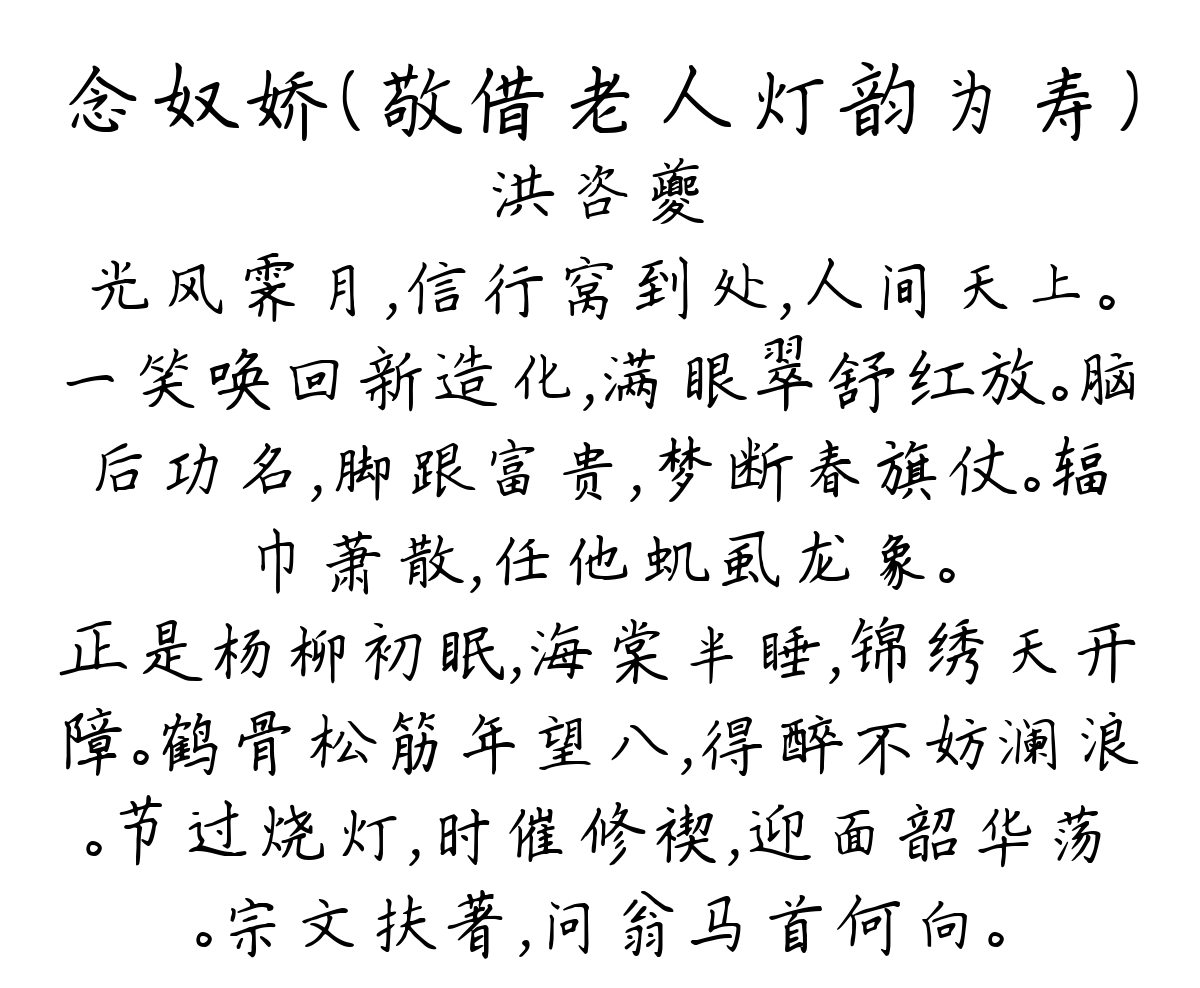 念奴娇(敬借老人灯韵为寿)
洪咨夔
光风霁月,信行窝到处,人间天上。
一笑唤回新造化,满眼翠舒红放。脑
后功名,脚跟富贵,梦断春旗仗。辐
巾萧散,任他虮虱龙象。
正是杨柳初眠,海棠半睡,锦绣天开
障。鹤骨松筋年望八,得醉不妨澜浪
。节过烧灯,时催修禊,迎面韶华荡
。宗文扶著,问翁马首何向。